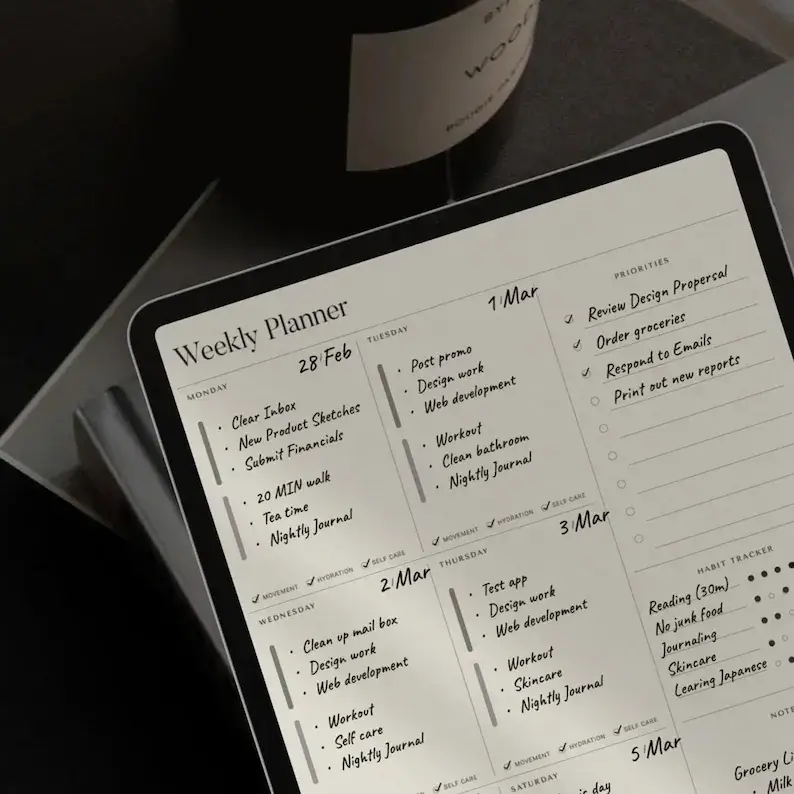 WOOD
Weekly Planner
MONDAY
28 Feb
Clear Inbox
New Product Sketches
Submit Financials
20 MIN walk
Tea time
Nightly Journal
MOVEMENT HYDRATION SELF CARE
TUESDAY
1 Mar
Post promo
Design work
Web development
Workout
Clean bathroom
Nightly Journal
MOVEMENT HYDRATION SELF CARE
WEDNESDAY
2 Mar
Clean up mail box
Design work
Web development
Workout
Self care
Nightly Journal
SELF CARE
THURSDAY
3 Mar
Test app
Design work
Web development
Workout
Skincare
Nightly Journal
MOVEMENT HYDRATION SELF CARE
SATURDAY
5 Mar
day
PRIORITIES
Review Design Propersal
Order groceries
Respond to Emails
Print out new reports
HABIT TRACKER
Reading (30m)
No junk food
Journaling
Skincare
Learing Japanese
Grocery
Milk